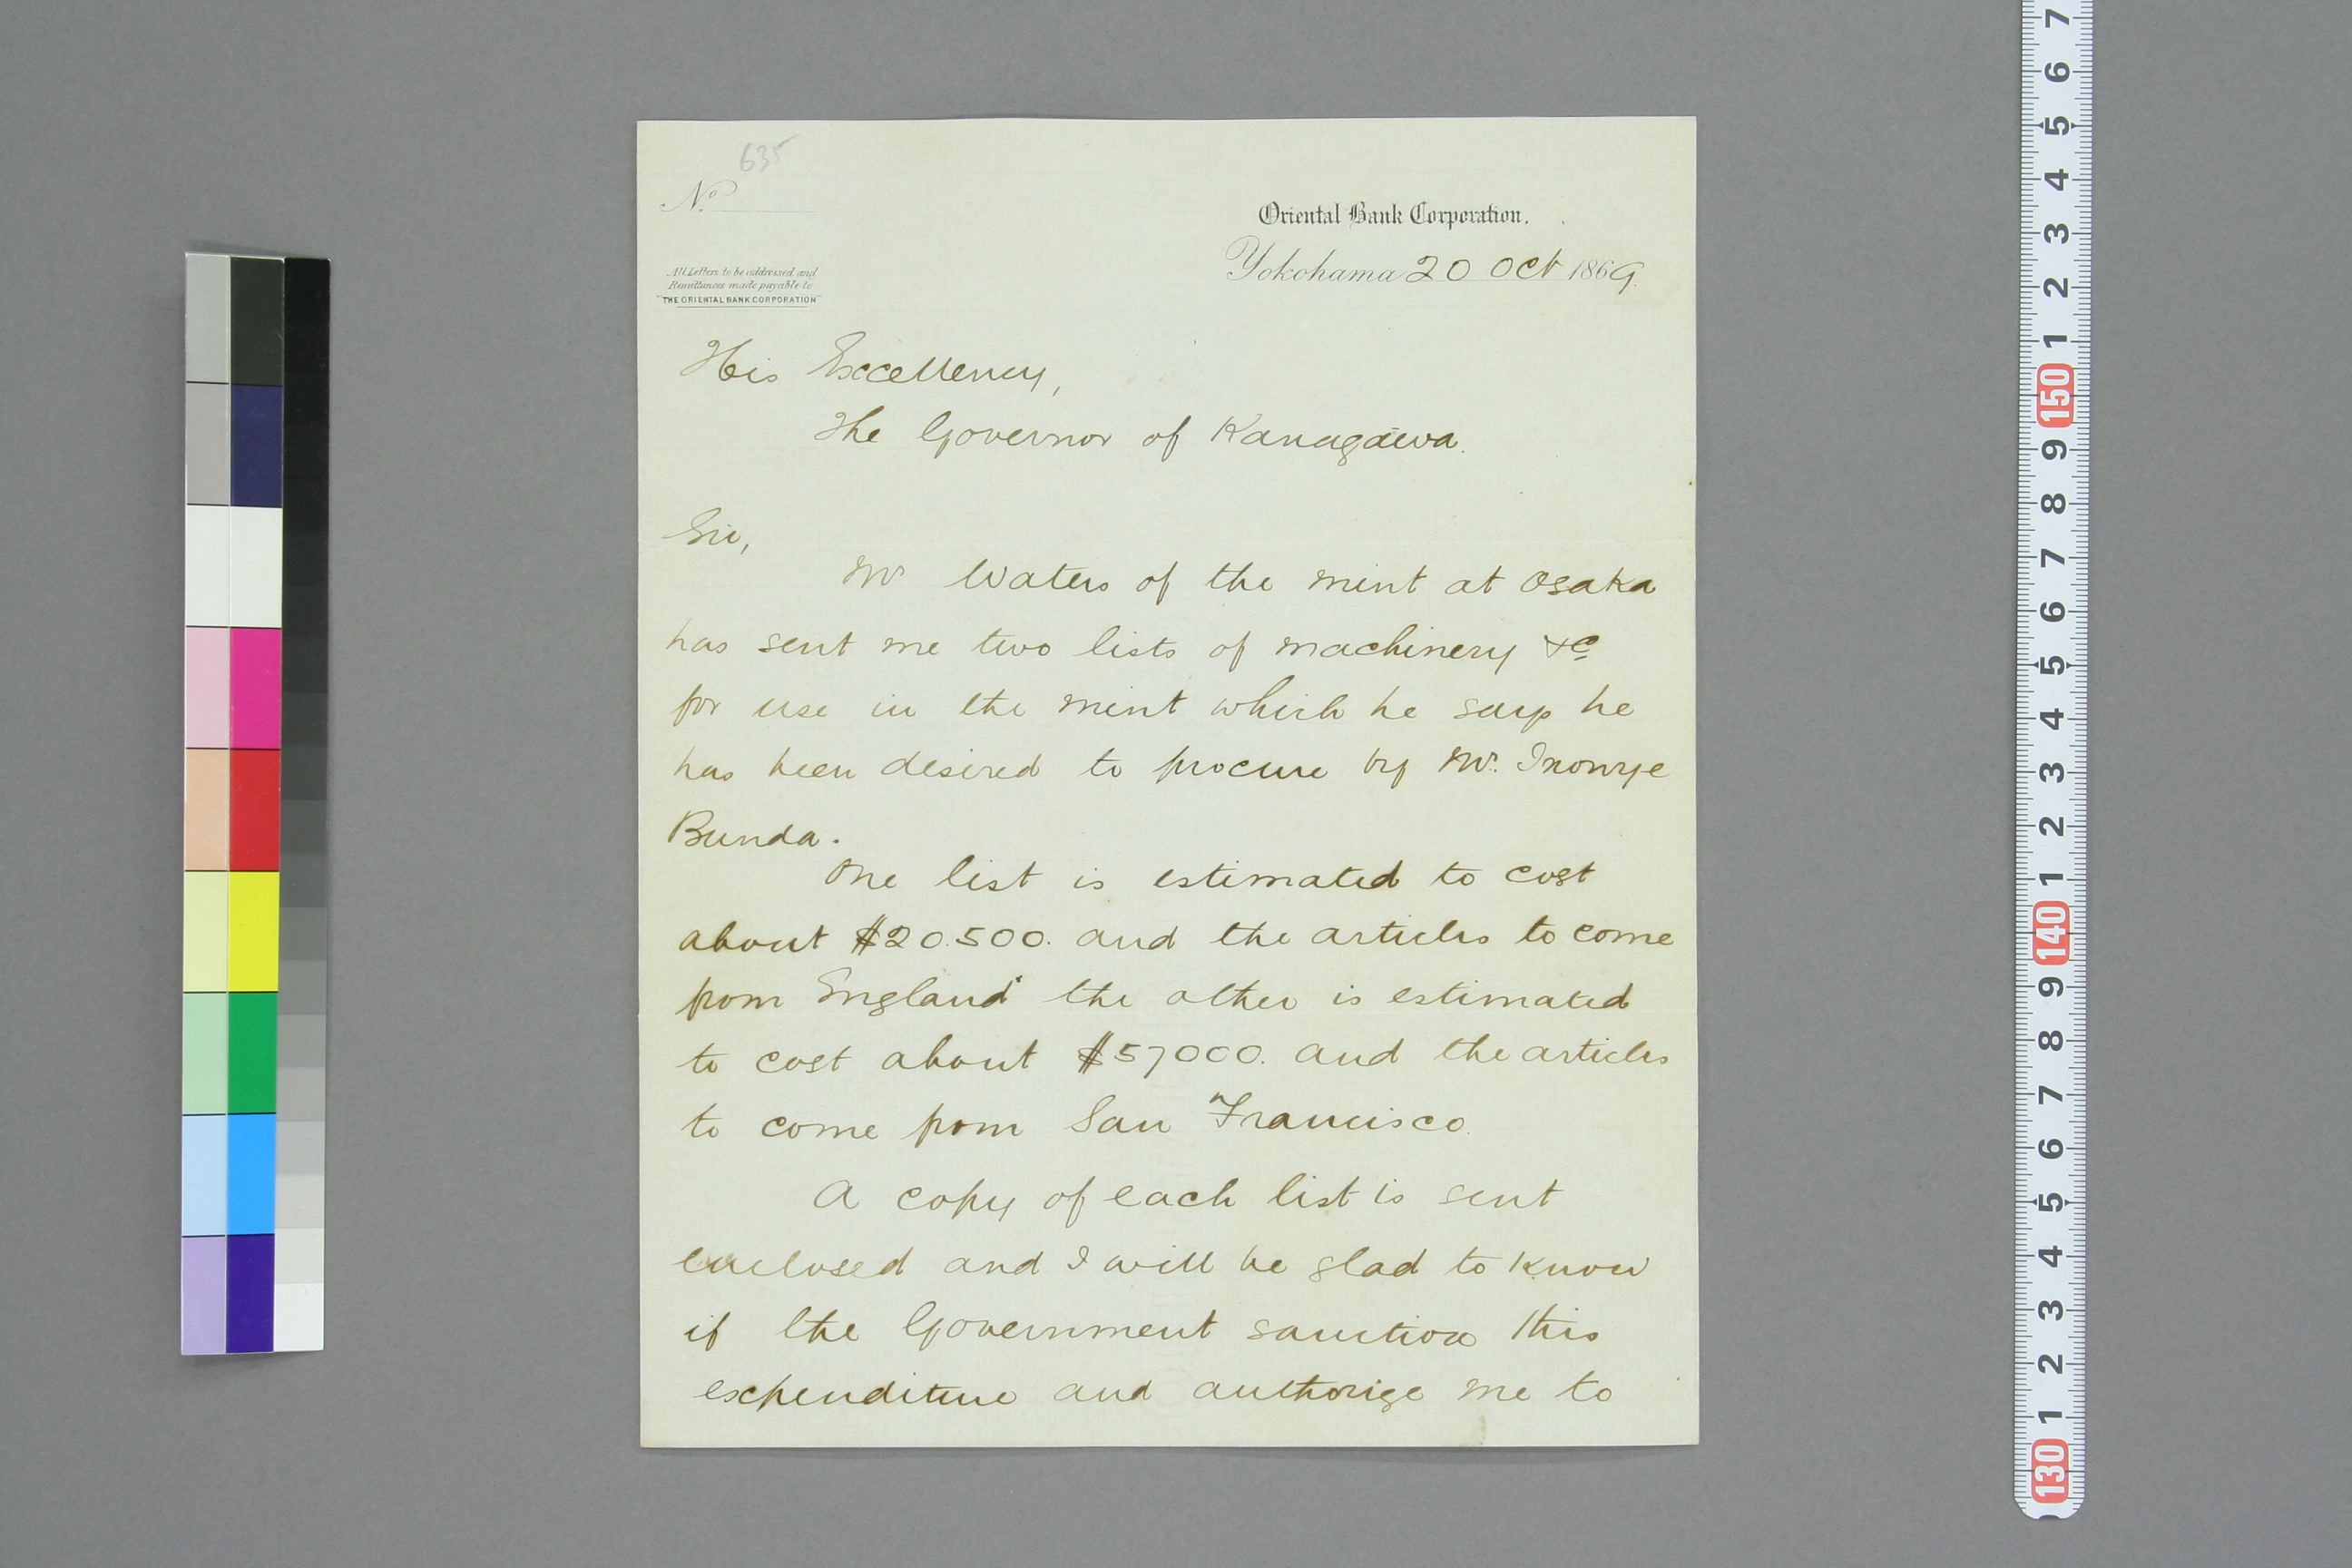 635
No.
Oriental Bank Corporation.
Yokohama 20 Oct 1869.
All Letters to be addressed and
Remittances made payable to
"THE ORIENTAL BANK CORPORATION"
His Excellency,
The Governor of Kanagawa.
Sir,
Mr Waters of the mint at Osaka
has sent me two lists of machinery &c
for use in the mint which he says he
has been desired to procure by Mr. Inowye
Bunda.
One list is estimated to cost
about $20.500. and the articles to come
from England the other is estimated
to cost about $57000. and the articles
to come from San Francisco.
A copy of each list is sent
enclosed and I will be glad to know
if the Government sanction this
expenditure and authorize me to
7
6
5
4
3
2
1
150
9
8
7
6
5
4
3
2
1
140
9
8
7
6
5
4
3
2
1
130